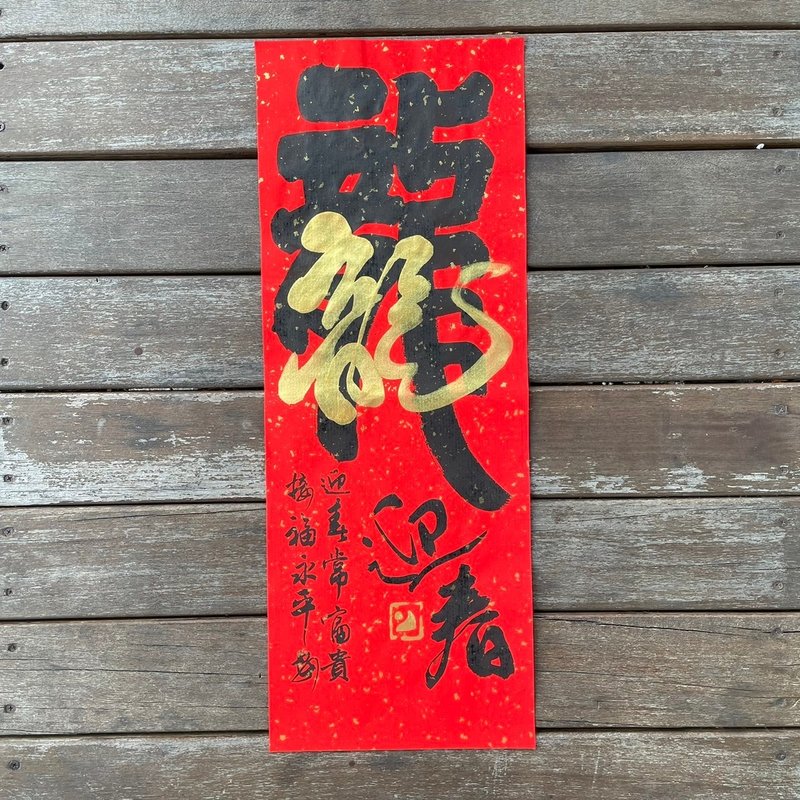 龍
迎春
迎春常富貴
接福永平安